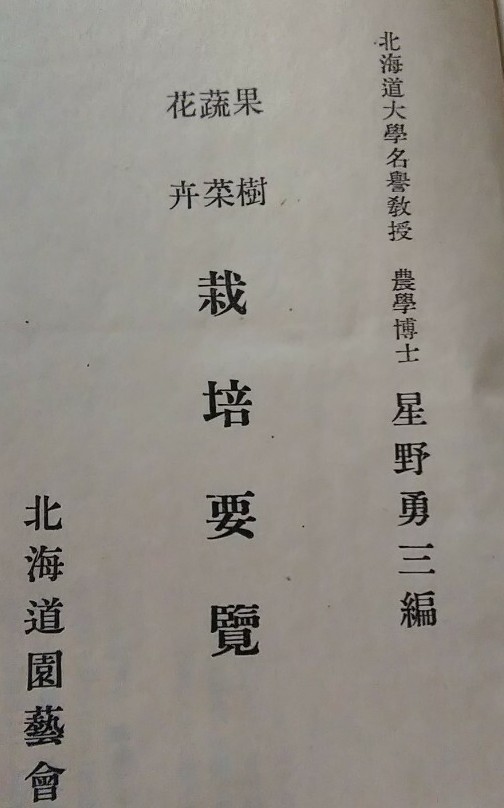 北海道大學名譽敎授 農學博士 星野勇三編
果樹
蔬菜
花卉
栽培要覽
北海道園藝會